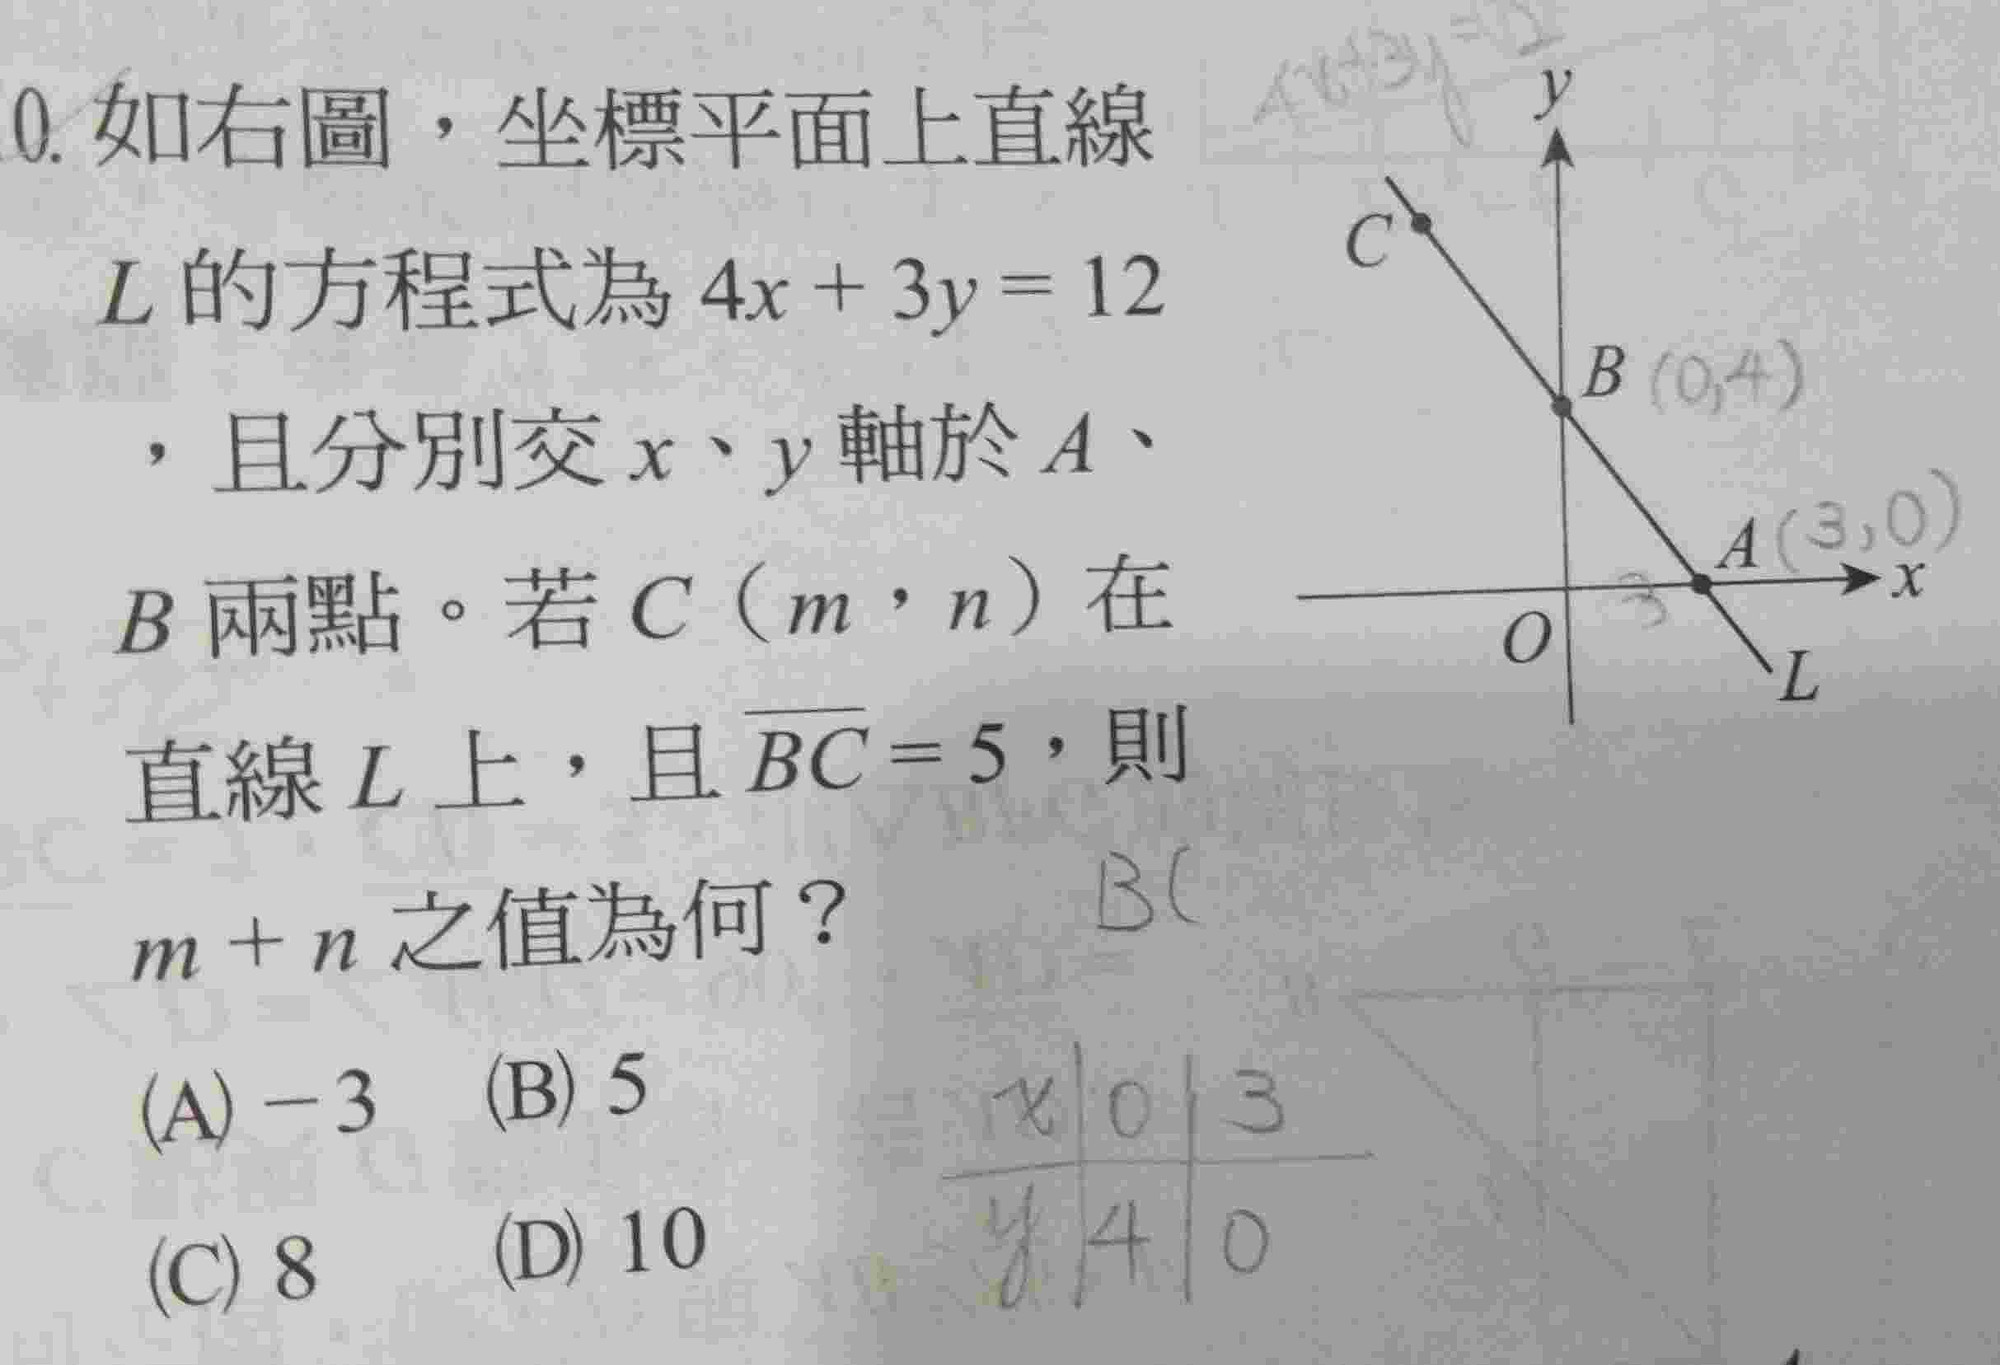 0. 如右圖，坐標平面上直線
L 的方程式為 4x + 3y = 12
，且分別交 x、y 軸於 A、
B 兩點。若 C（m，n）在
直線 L 上，且 BC = 5，則
m + n 之值為何？
(A) −3 (B) 5
(C) 8 (D) 10
4x+3y=12
y
C
B (0,4)
A (3,0)
x
O
3
L
B(
x 0 3
y 4 0